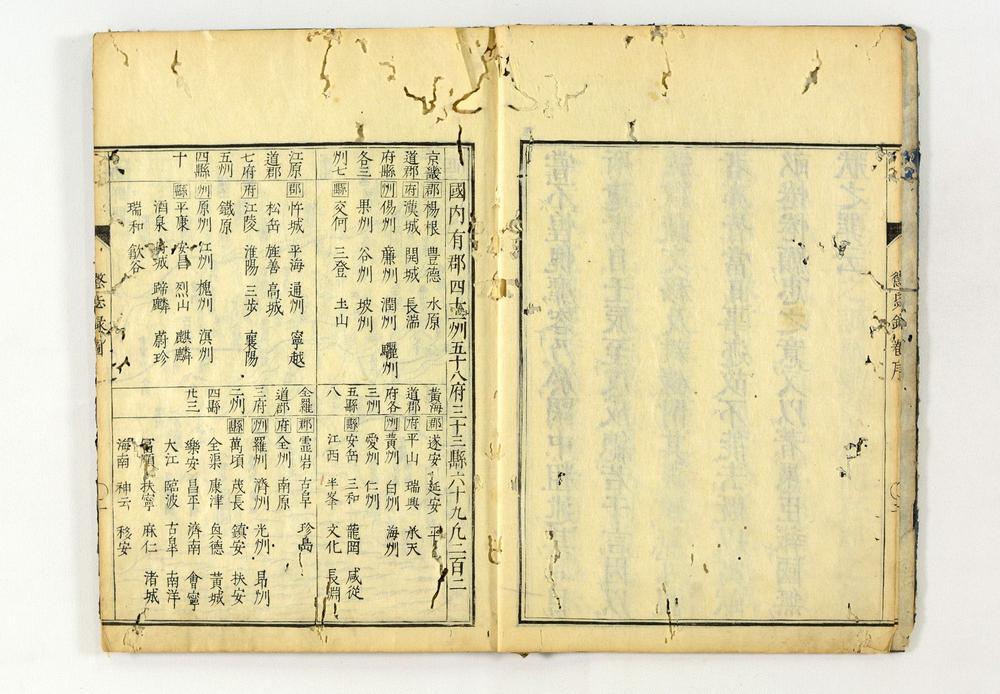 國內有郡四十二州五十八府三十三縣六十九凡二百二
京畿 郡 楊根 豊德 水原
道郡 府 漢城 開城 長湍
府縣 州 傷州 廉州 潤州 驪州
各三 果州 谷州 坡州
州七 縣 交河 三登 土山
江原 郡 忤城 平海 通州 寧越
道郡 松岳 旌善 高城
七府 府 江陵 淮陽 三步 襄陽
五州 鐵原
四縣 州 原州 江州 槐州 溟州
十 縣 平康 安昌 烈山 麒麟
酒泉 蹄麟 蔚珍
瑞和 歙谷
黃海 郡 遂安 延安 平
道郡 府 平山 瑞興 水天
府各 州 黃州 白州 海州
三州 愛州 仁州
五縣 縣 安岳 三和 龍岡 咸從
八 江西 半峯 文化 長淵
全羅 郡 霊岩 古阜 珍島
道郡 府 全州 南原
三府 州 羅州 濟州 光州 昻州
二州 縣 萬頃 茂長 鎮安 扶安
四縣 全渠 康津 奐德 黃城
卄三 樂安 昌平 濟南 會寧
大江 臨波 古阜 南洋
富順 扶寧 麻仁 渚城
海南 神云 移安